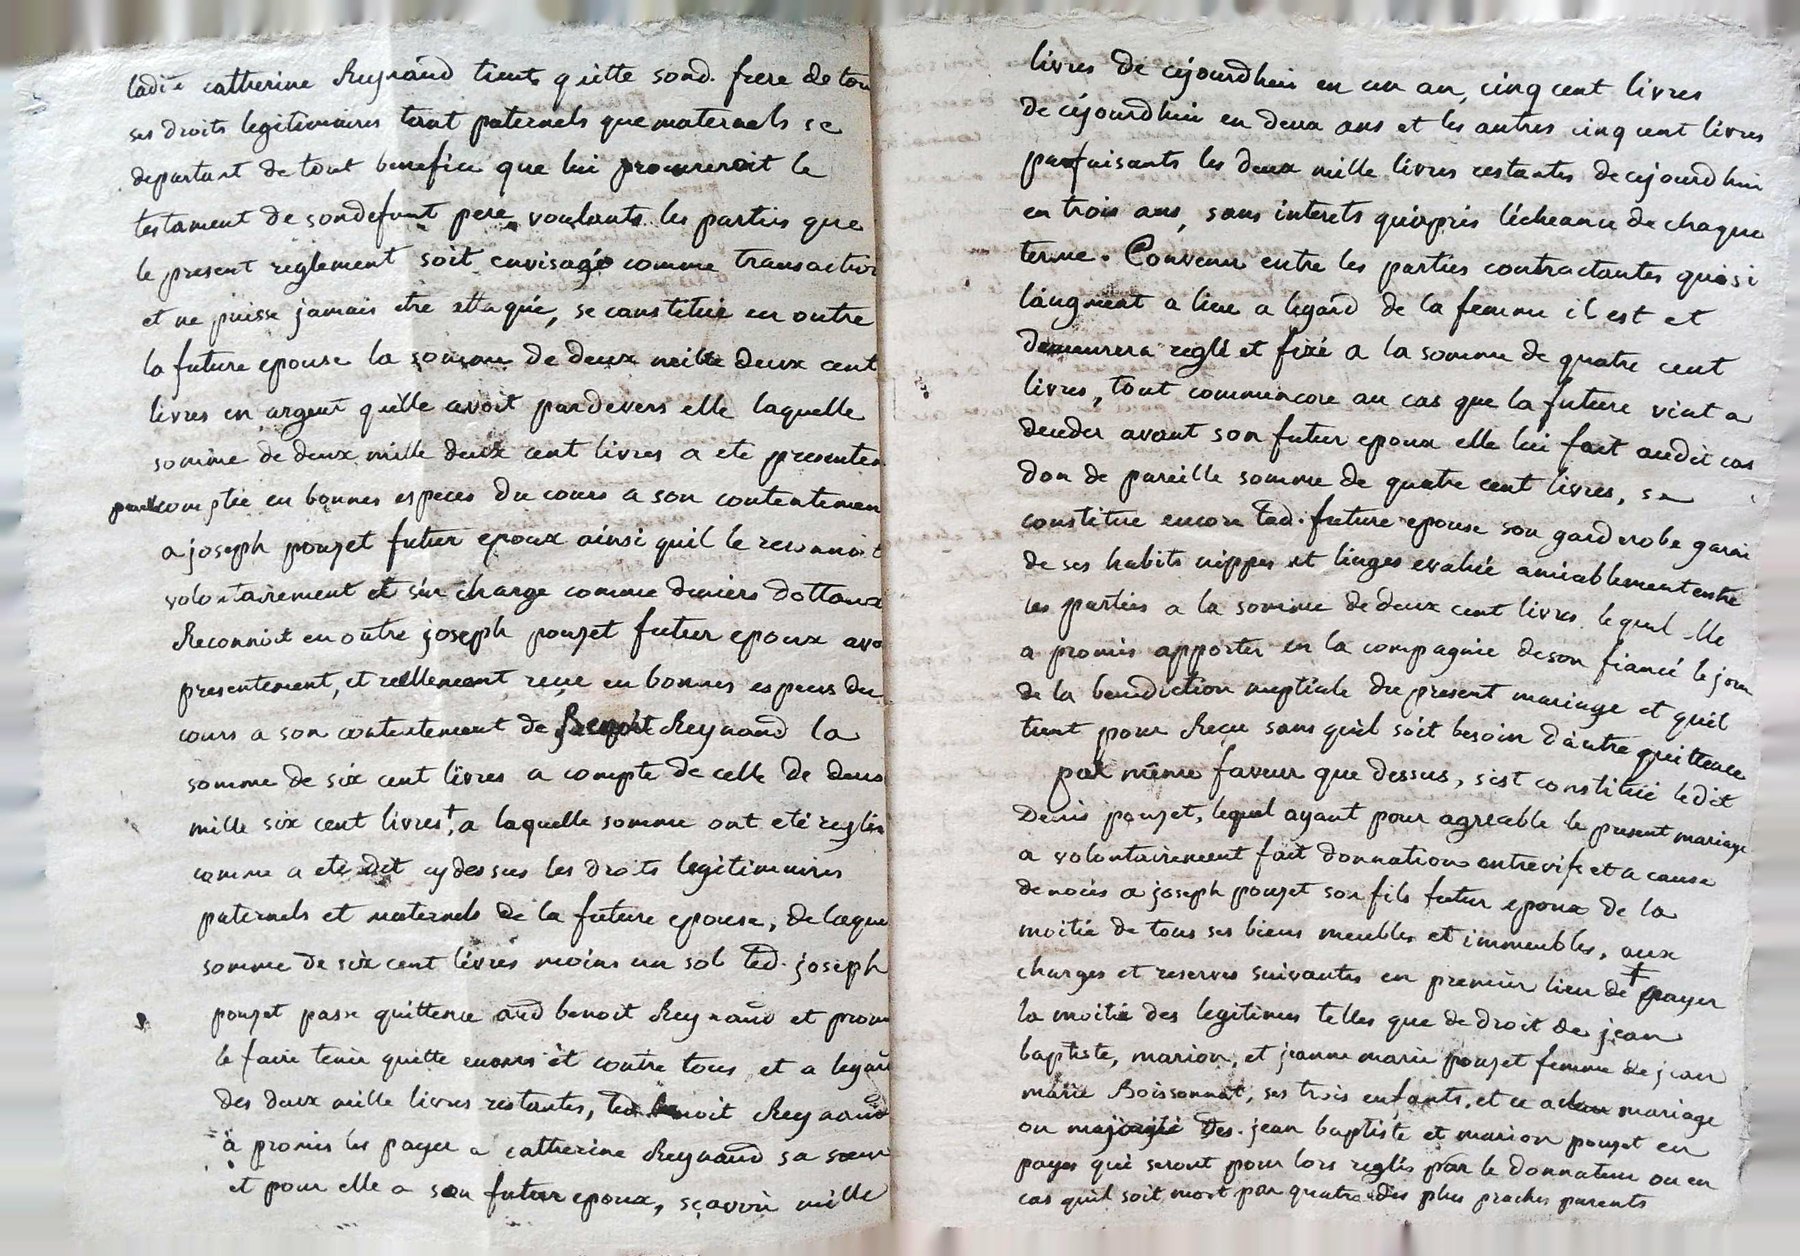 ladie catherine Reynaud tient quitte sond. frere de tou
ses droits legitimaires tant paternels que maternels se
departant de tout benefice que lui procureroit le
testament de son defunt pere, voulants les parties que
le present reglement soit envisagé comme transaction
et ne puisse jamais etre attaqué, se constitue en outre
la future epouse la somme de deux mille deux cent
livres en argent qu'elle avoit pardevers elle laquelle
somme de deux mille deux cent livres a ete presentem
comptée en bonnes especes du cours a son contentemen
a joseph pouzet futur epoux ainsi quil le reconnoit
volontairement et s'en charge comme deniers dottaux
Reconnoit en outre joseph pouzet futur epoux avo
presentement, et reellement reçue en bonnes especes du
cours a son contentement de Benoit Reynaud la
somme de six cent livres a compte de celle de deux
mille six cent livres, a laquelle somme ont eté reglés
comme a ete dit cy dessus les droits legitimaires
paternels et maternels de la future epouse, de laque
somme de six cent livres moins un sol led. joseph
pouzet passe quittence aud benoit Reynaud et prom
le faire tenir quitte envers et contre tous et a legard
des deux mille livres restantes, led benoit Reynaud
à promis les payer a catherine Reynaud sa sœur
et pour elle a son futur epoux, sçavoir mille
livres de cejourdhui en un an, cinq cent livres
de cejourdhui en deux ans et les autres cinq cent livres
parfaisants les deux mille livres restantes de cejourdhui
en trois ans, sans interets qu'après l'écheance de chaque
terme. Convenu entre les parties contractantes que si
laugment a lieu a legard de la femme il est et
demeurera reglé et fixé a la somme de quatre cent
livres, tout comme encore au cas que la future vint a
deceder avant son futur epoux elle lui fait audit cas
don de pareille somme de quatre cent livres, se
constitue encore lad. future epouse son garderobe garni
de ses habits nippes et linges evalué amiablement entre
les parties a la somme de deux cent livres lequel elle
a promis apporter en la compagnie de son fiancé le jour
de la benediction nuptiale du present mariage et quil
tient pour Reçu sans quil soit besoin d'autre quittence
par même faveur que dessus, s'est constitué ledit
Denis pouzet, lequel ayant pour agreable le present mariage
a volontairement fait donnation entrevifs et a cause
de noces a joseph pouzet son fils futur epoux de la
moitié de tous ses biens meubles et immeubles, aux
charges et reserves suivantes en premier lieu de payer
la moitié des legitimes telles que de droit de jean
baptiste, marion, et jeanne marie pouzet femme de jean
marie Boissonnat, ses trois enfants, et ce a leur mariage
ou majorité des. jean baptiste et marion pouzet en
payes qui seront pour lors reglés par le donnateur ou en
cas quil soit mort par quatre des plus proches parents